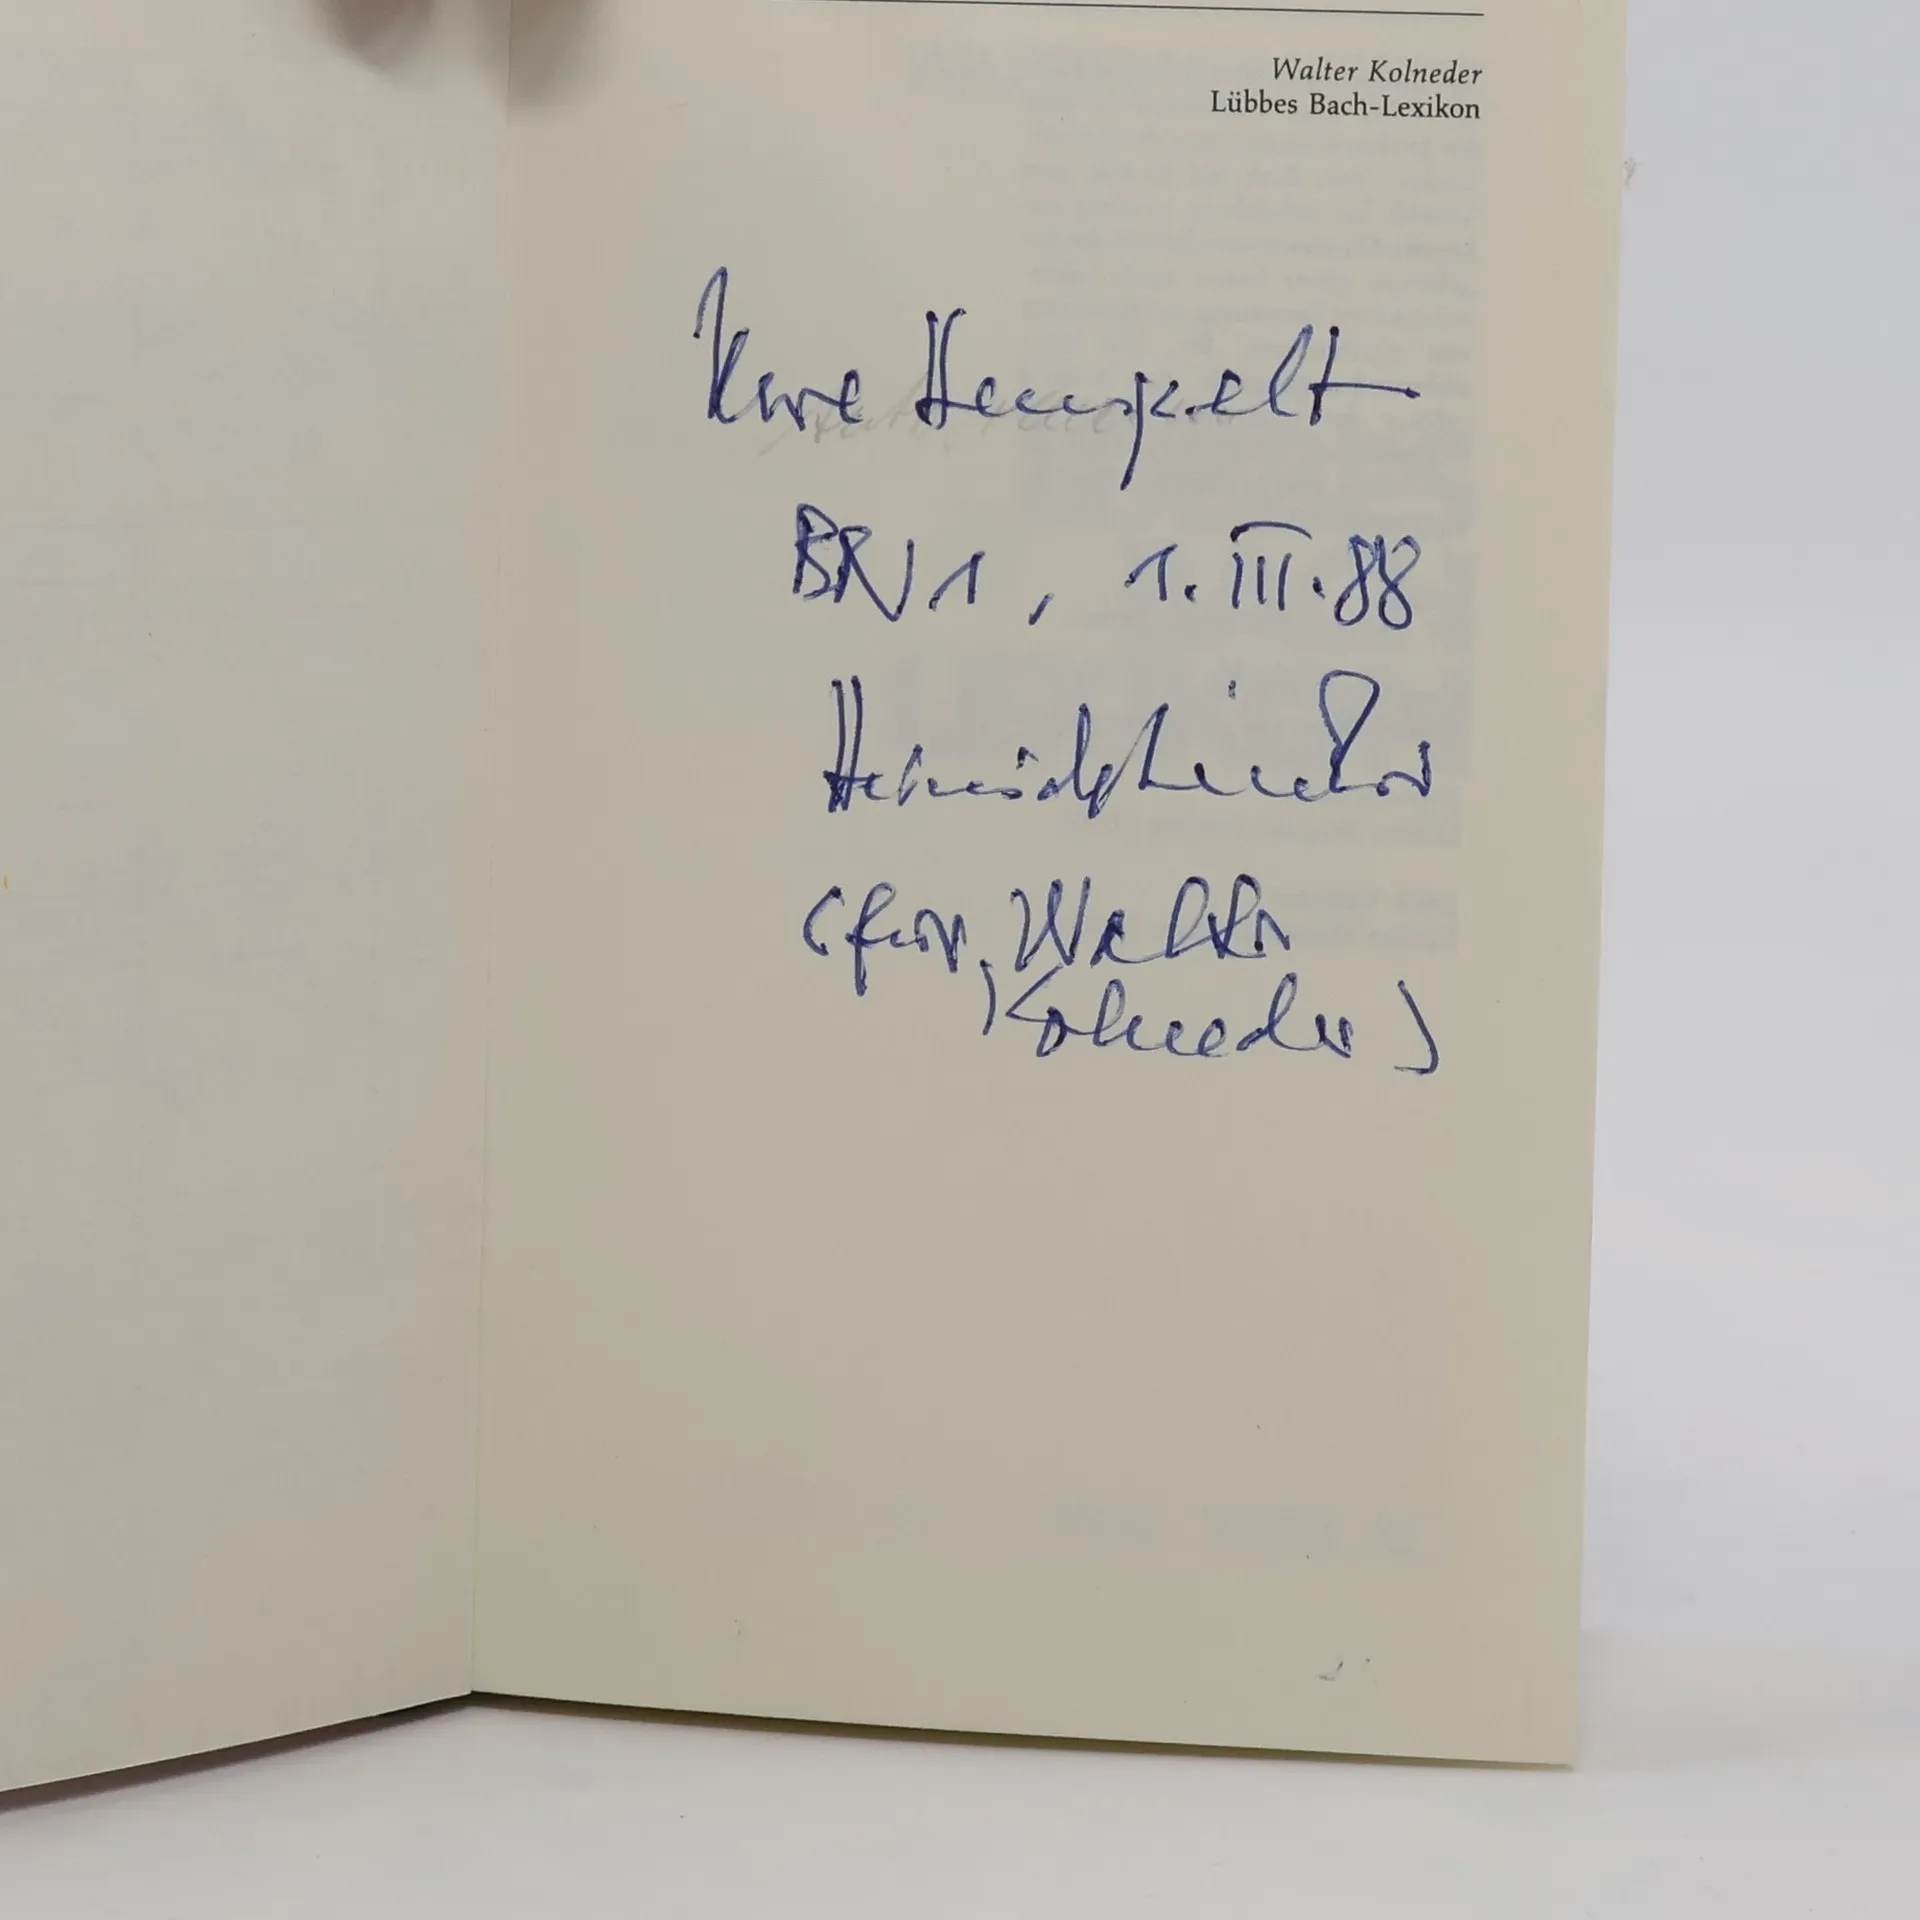 Walter Kolneder
Lübbes Bach-Lexikon
Uwe Hempelt
BN 1, 1.III.88
(für Walter
Kolneder)